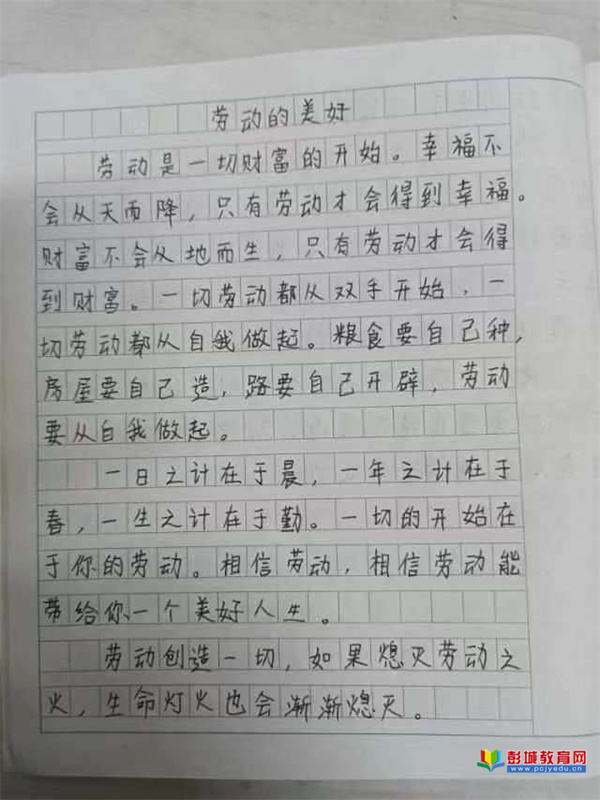 劳动的美好
劳动是一切财富的开始。幸福不
会从天而降，只有劳动才会得到幸福。
财富不会从地而生，只有劳动才会得
到财富。一切劳动都从双手开始，一
切劳动都从自我做起。粮食要自己种，
房屋要自己造，路要自己开辟，劳动
要从自我做起。
一日之计在于晨，一年之计在于
春，一生之计在于勤。一切的开始在
于你的劳动。相信劳动，相信劳动能
带给你一个美好人生。
劳动创造一切，如果熄灭劳动之
火，生命灯火也会渐渐熄灭。
彭城教育网
www.pcjyedu.cn